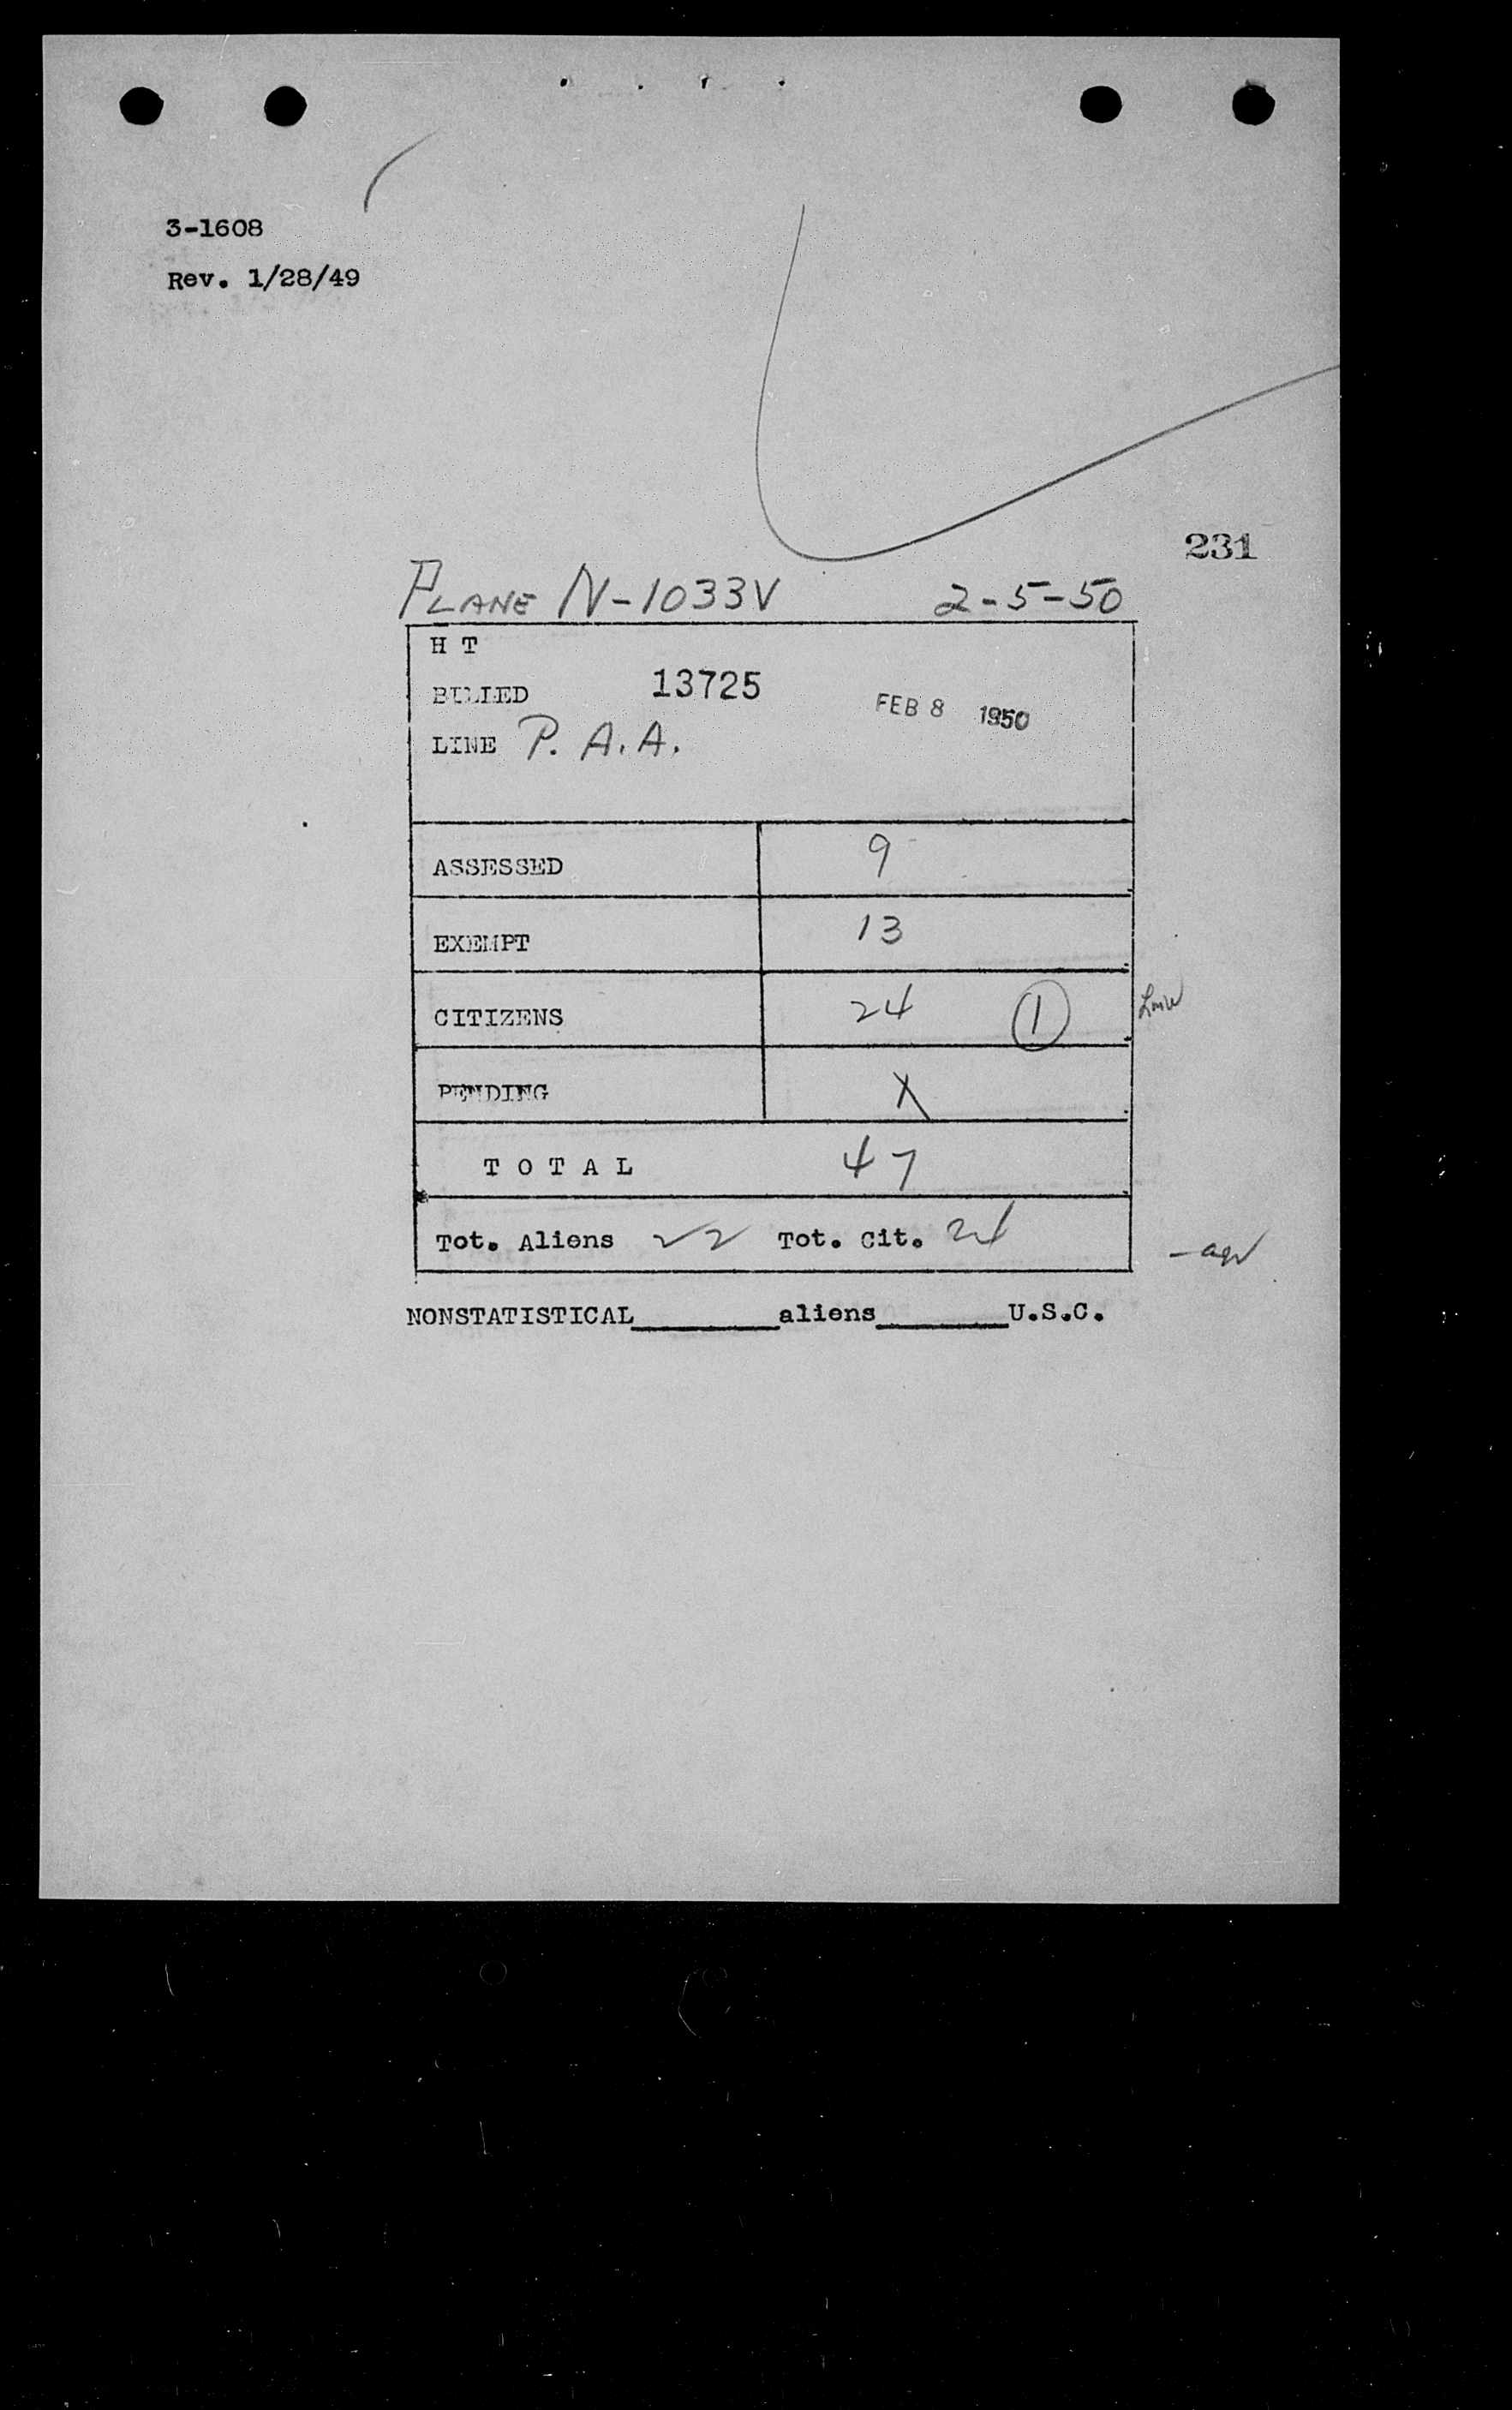 3-1608
Rev. 1/28/49
231
PLANE N-1033V 2-5-50
H T
BILLED 13725 FEB 8 1950
LINE P. A. A.
ASSESSED 9
EXEMPT 13
CITIZENS 24 1
PENDING X
T O T A L 47
Tot. Aliens 22 Tot. Cit. 24
NONSTATISTICAL________aliens________U.S.C.